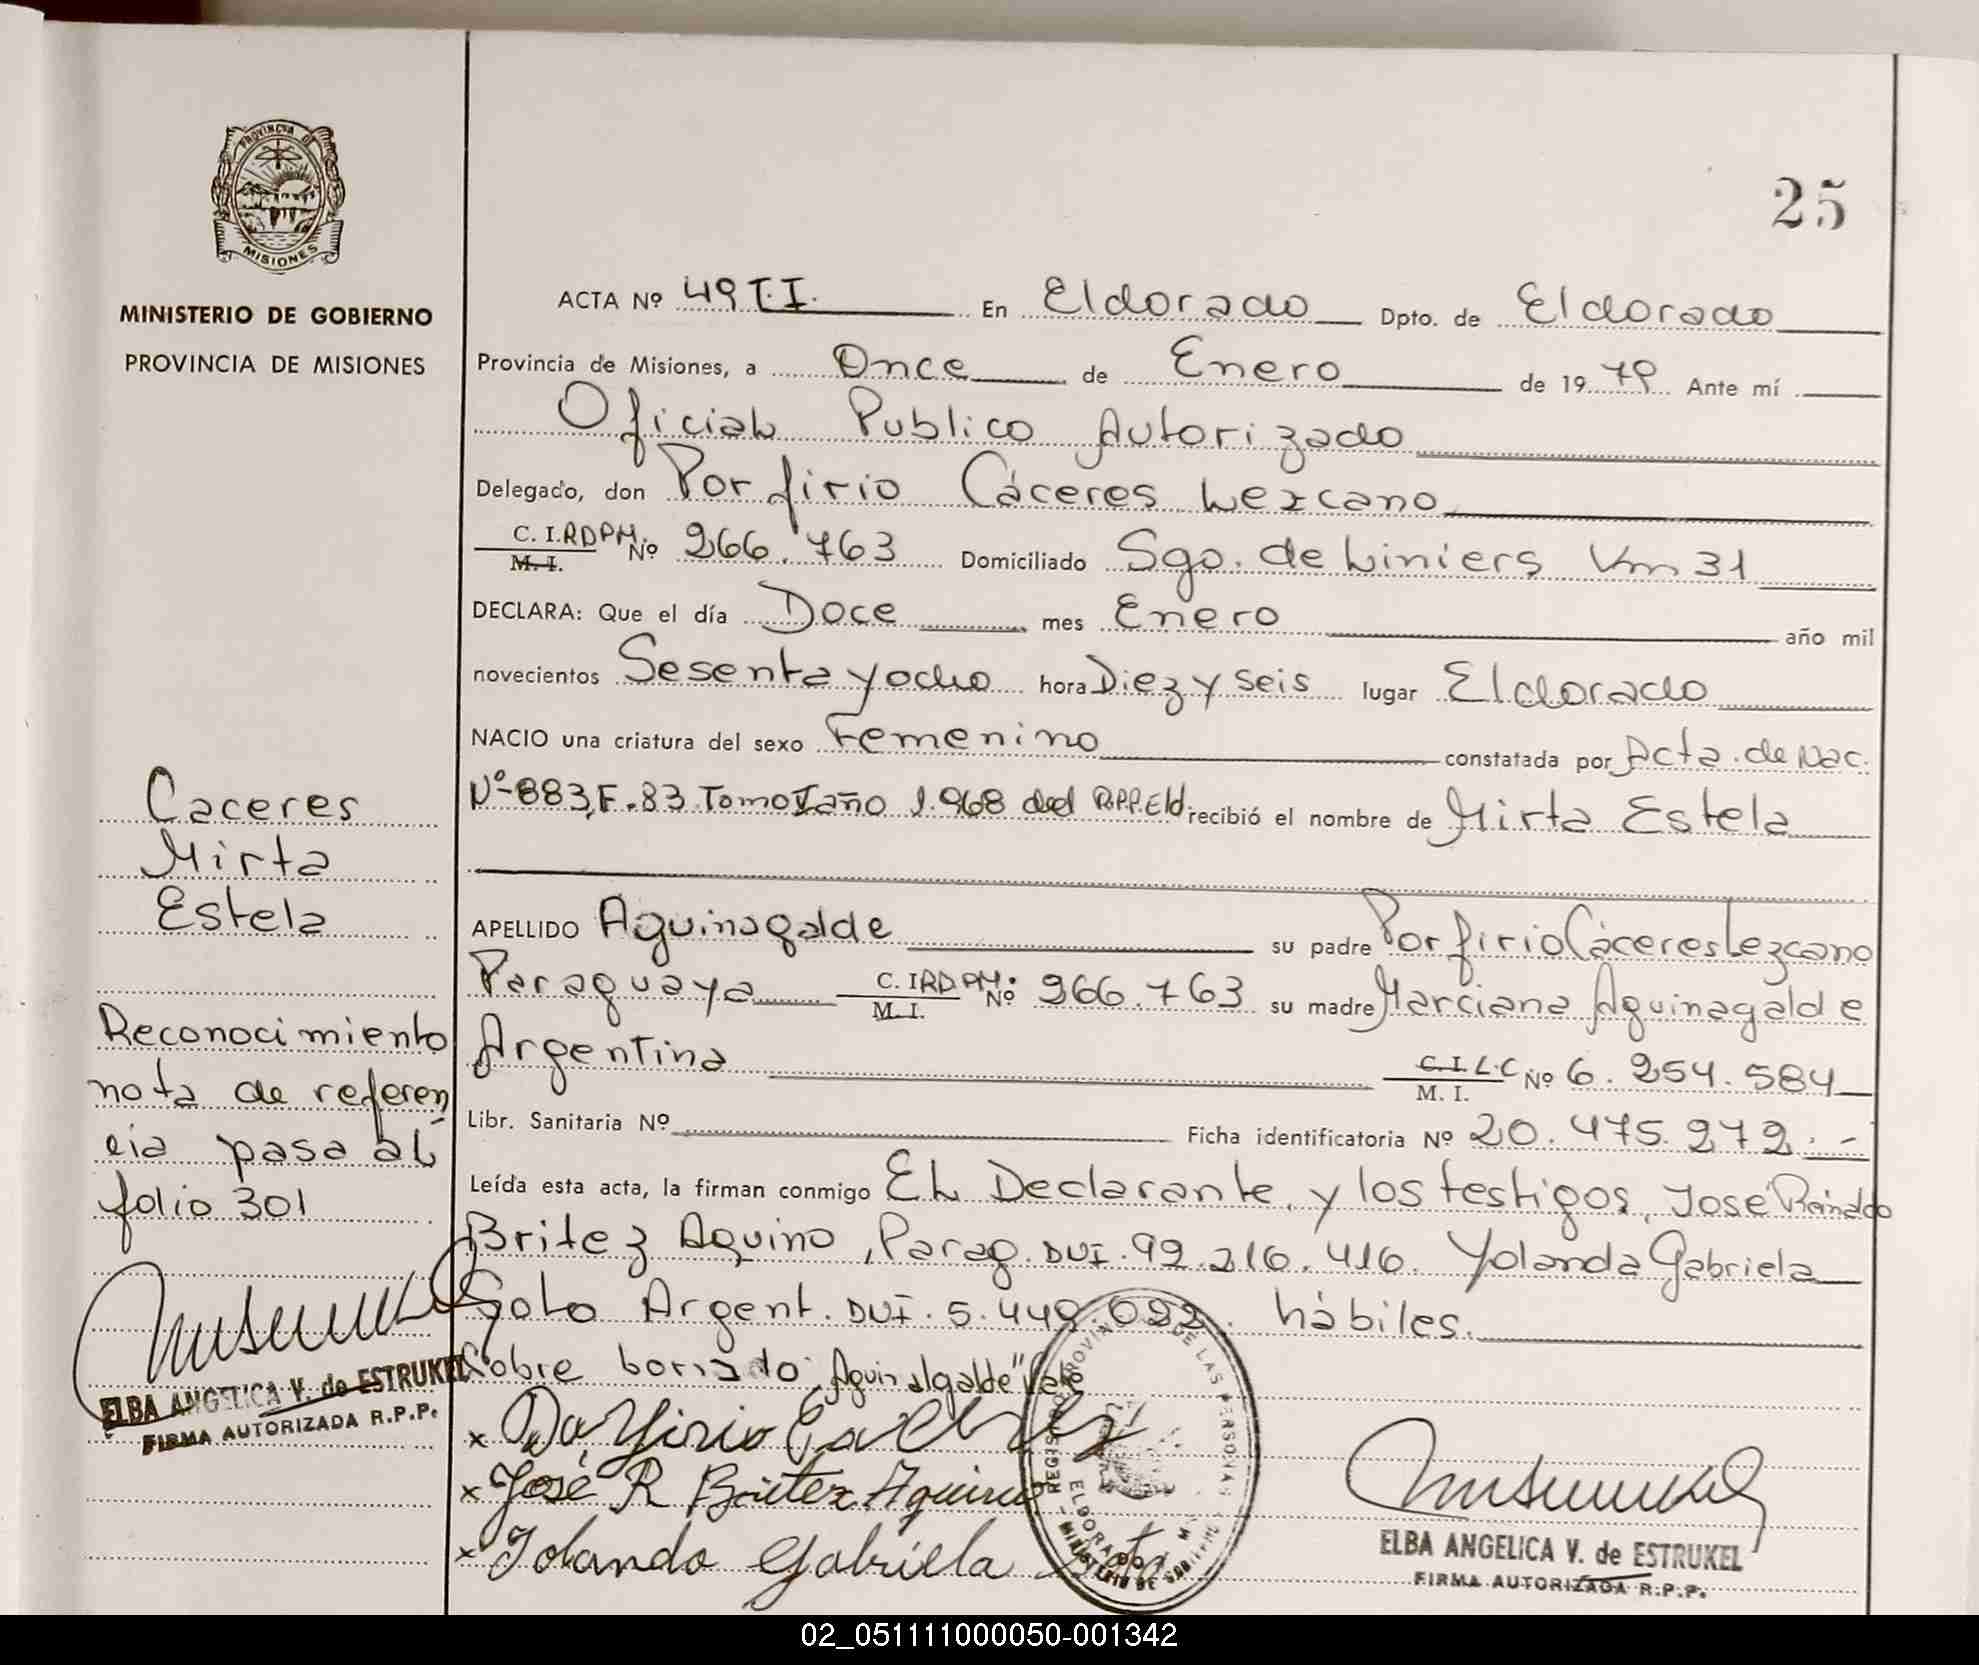 PROVINCIA DE
MISIONES
MINISTERIO DE GOBIERNO
PROVINCIA DE MISIONES
25
ACTA Nº 49 T.I. En Eldorado Dpto. de Eldorado
Provincia de Misiones, a Once de Enero de 1979 Ante mí
Oficial Publico Autorizado
Delegado, don Porfirio Cáceres Lezcano
C. I. RDPM Nº 266.763 Domiciliado Sgo. de Liniers Km 31
M. I.
DECLARA: Que el día Doce mes Enero año mil
novecientos Sesenta y ocho hora Diez y seis lugar Eldorado
NACIO una criatura del sexo Femenino constatada por Acta de Nac.
Nº 883, F. 83 Tomo I año 1.968 del R.P.P. Eld. recibió el nombre de Mirta Estela
APELLIDO Aguinagalde su padre Porfirio Cáceres Lezcano
Paraguaya C. I. RDPM. Nº 266.763 su madre Marciana Aguinagalde
M. I.
Argentina C. I. L.C Nº 6.254.584
M. I.
Libr. Sanitaria Nº Ficha identificatoria Nº 20.475.272.-
Leída esta acta, la firman conmigo El Declarante, y los testigos, José Reinaldo
Britez Aquino, Parag. DUI. 92.216.416. Yolanda Gabriela
Soto Argent. DUI. 5.449.022. hábiles.
Sobre borrado: Aguinalgalde" Vale
x Porfirio Caceres
x José R Britez Aquino
x Yolanda Gabriela Soto
Caceres
Mirta
Estela
Reconocimiento
nota de referen
cia pasa al
folio 301
ELBA ANGELICA V. de ESTRUKEL
FIRMA AUTORIZADA R.P.P.
REGISTRO PROVINCIAL DE LAS PERSONAS
ELDORADO
MINISTERIO DE GOBIERNO
ELBA ANGELICA V. de ESTRUKEL
FIRMA AUTORIZADA R.P.P.
02_051111000050-001342